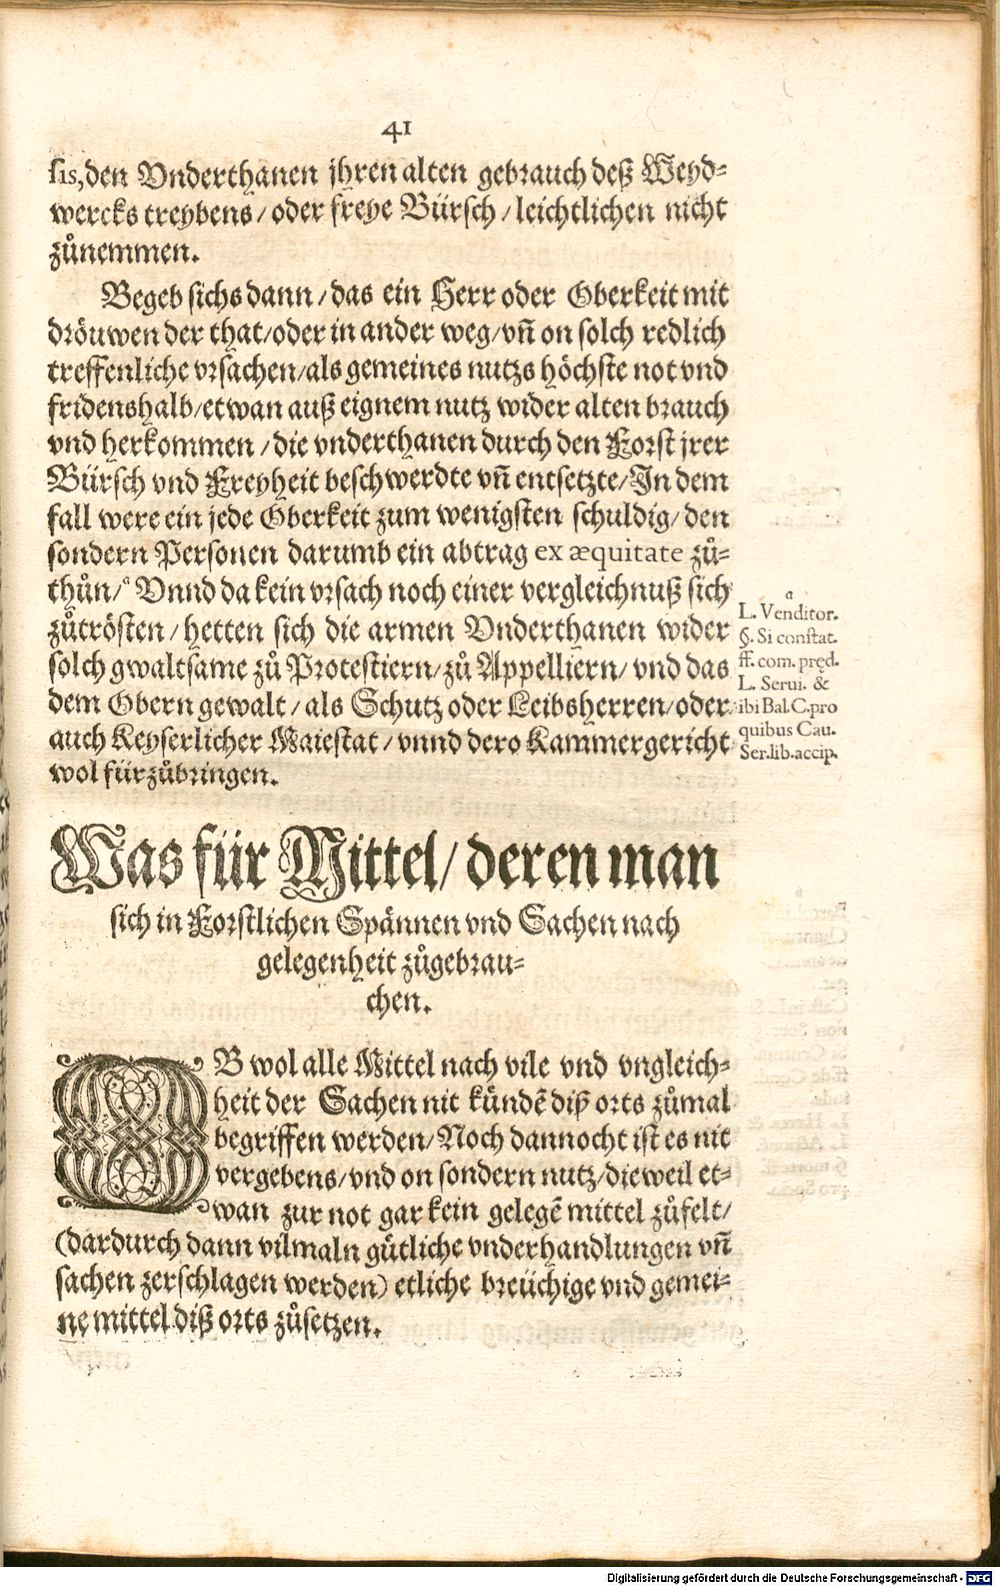 41
sis, den Vnderthanen jhren alten gebrauch deß Weyd-
wercks treybens / oder freye Bürsch / leichtlichen nicht
zůnemmen.
Begeb sichs dann / das ein Herr oder Oberkeit mit
dröuwen der that / oder in ander weg / vñ on solch redlich
treffenliche vrsachen / als gemeines nutzs höchste not vnd
fridenshalb / etwan auß eignem nutz wider alten brauch
vnd herkommen / die vnderthanen durch den Forst jrer
Bürsch vnd Freyheit beschwerdte vñ entsetzte / In dem
fall were ein jede Oberkeit zum wenigsten schuldig / den
sondern Personen darumb ein abtrag ex æquitate zů-
thůn / a Vnnd da kein vrsach noch einer vergleichnuß sich
zůtrösten / hetten sich die armen Vnderthanen wider
solch gwaltsame zů Protestiern / zů Appelliern / vnd das
dem Obern gewalt / als Schutz oder Leibsherren / oder
auch Keyserlicher Maiestat / vnnd dero Kammergericht
wol fürzůbringen.
a
L. Venditor.
§. Si constat.
ff. com. pręd.
L. Serui. &
ibi Bal. C. pro
quibus Cau.
Ser. lib. accip.
Was für Mittel / deren man
sich in Forstlichen Spännen vnd Sachen nach
gelegenheit zůgebrau-
chen.
OB wol alle Mittel nach vile vnd vngleich-
heit der Sachen nit kündẽ diß orts zůmal
begriffen werden / Noch dannocht ist es nit
vergebens / vnd on sondern nutz / dieweil et-
wan zur not gar kein gelegẽ mittel zůfelt /
(dardurch dann vilmaln gůtliche vnderhandlungen vñ
sachen zerschlagen werden) etliche breüchige vnd gemei-
ne mittel diß orts zůsetzen.
Digitalisierung gefördert durch die Deutsche Forschungsgemeinschaft - DFG